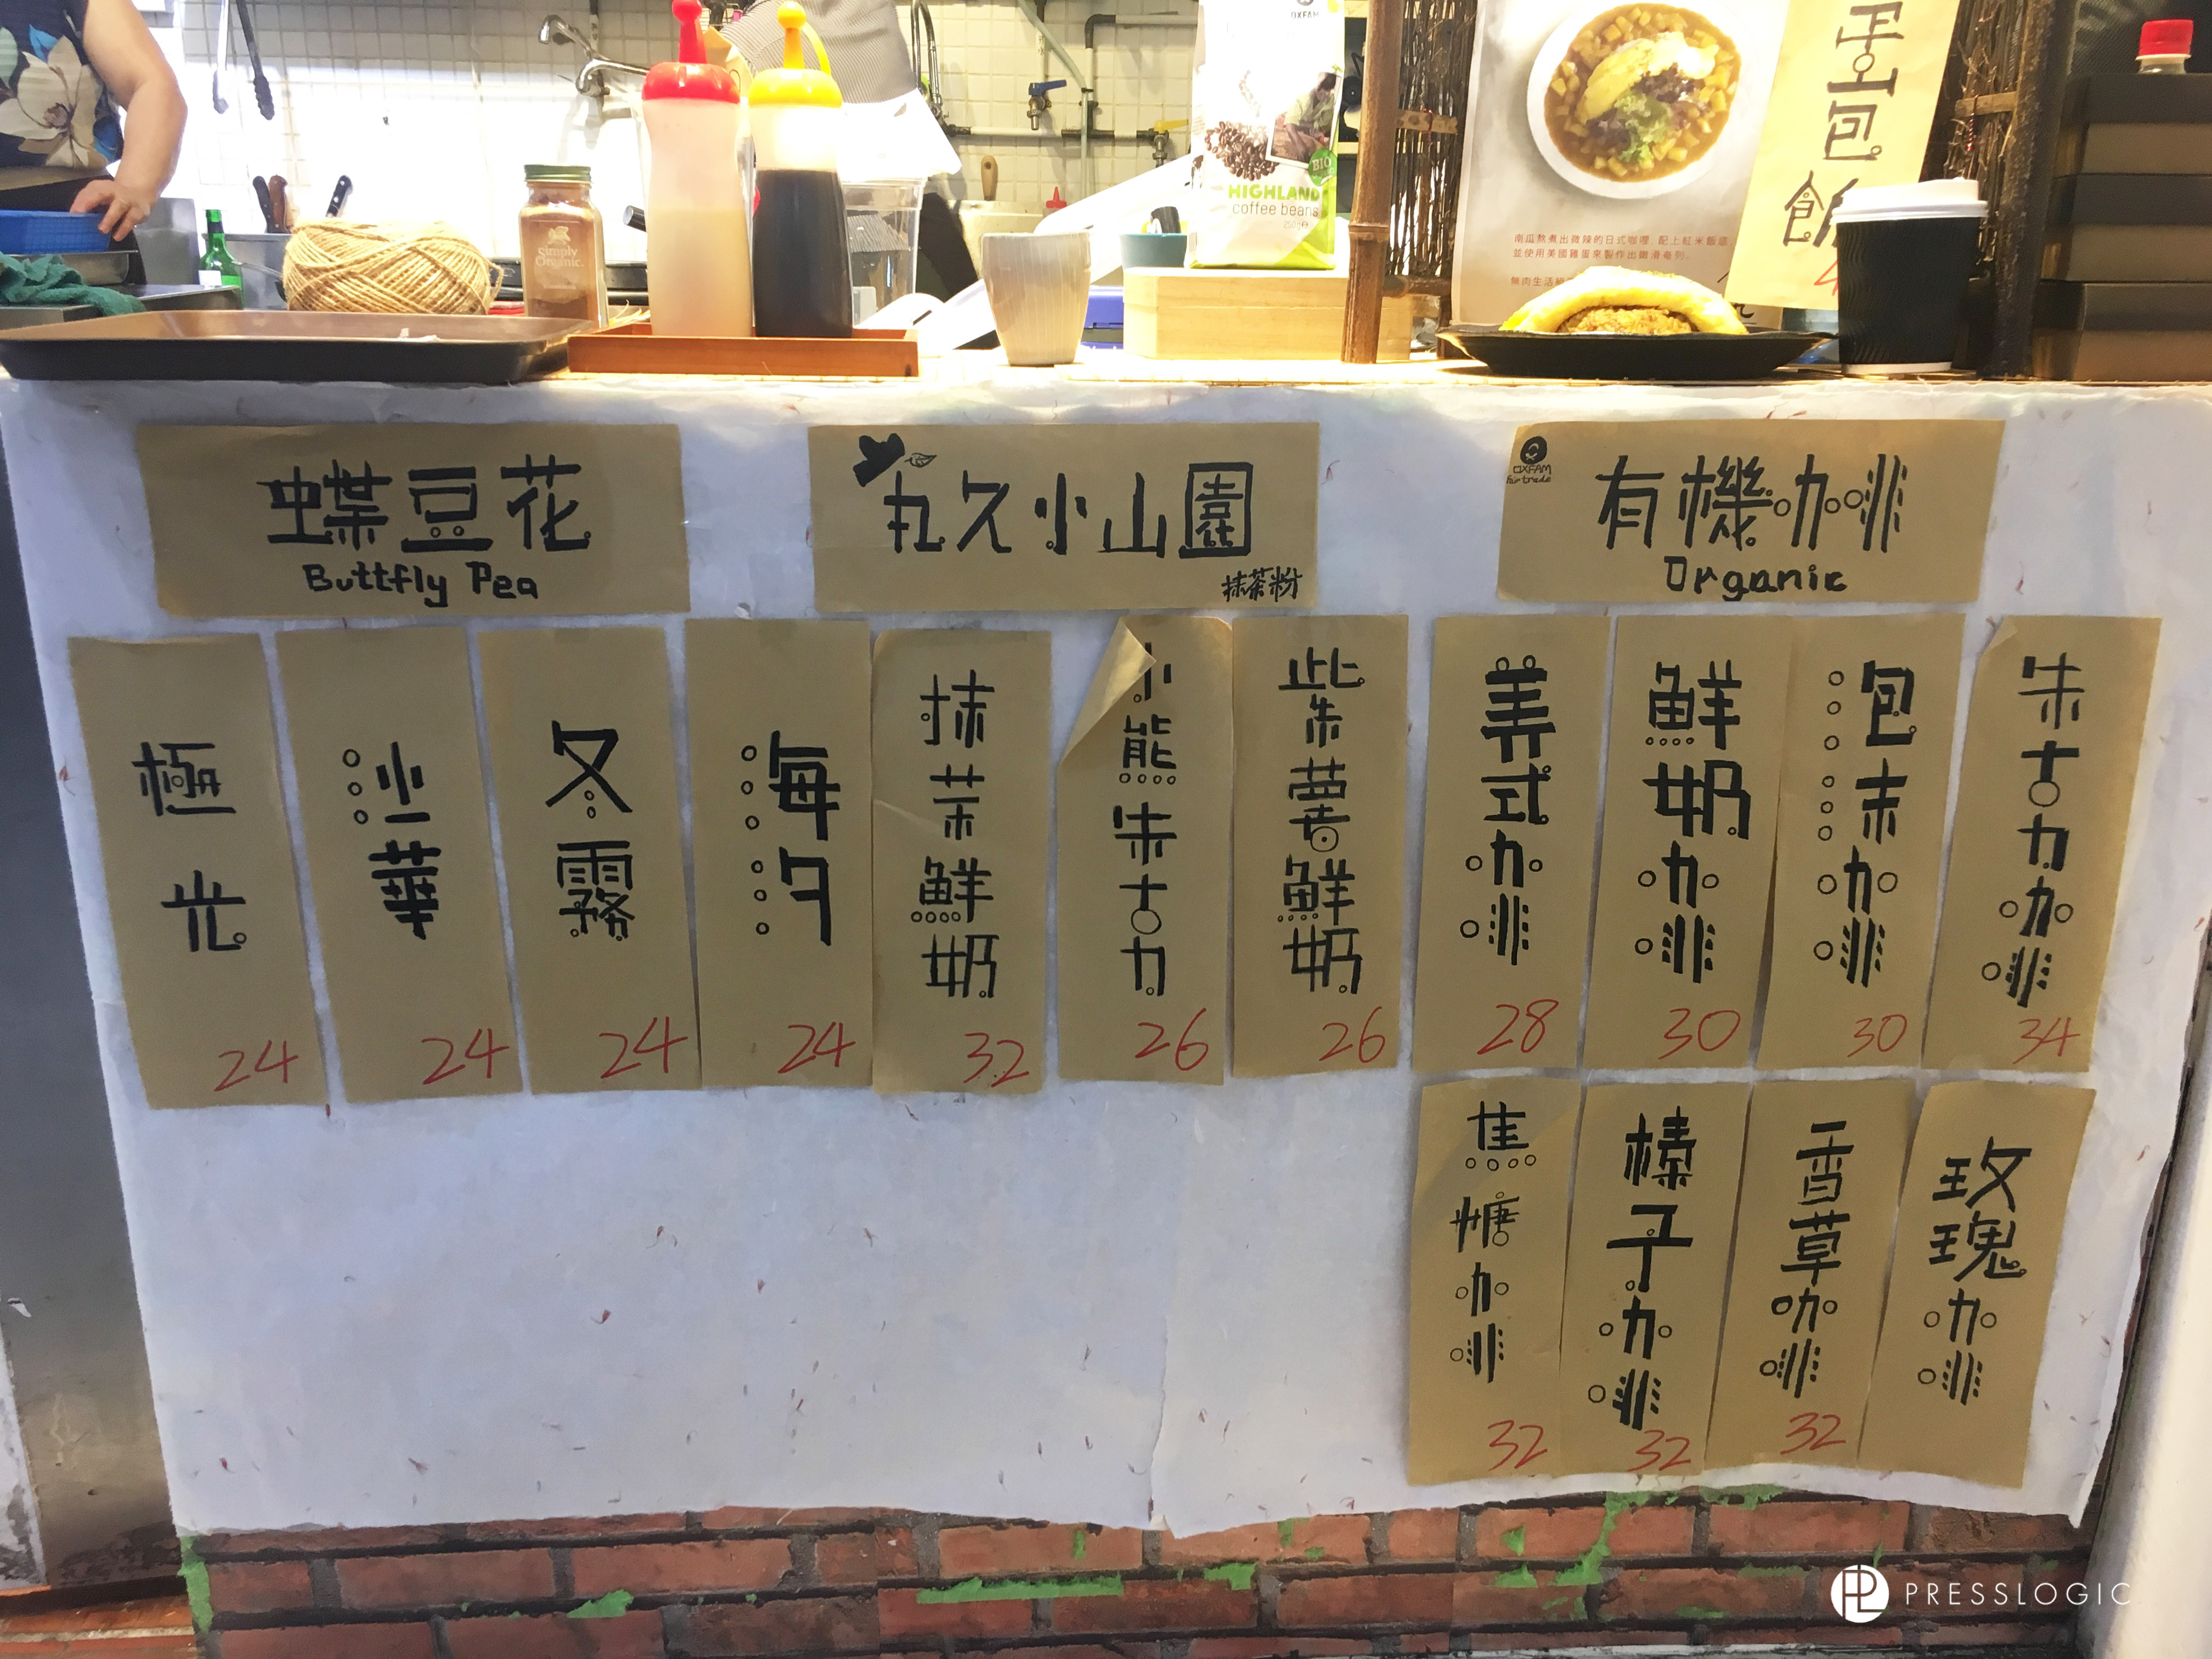 OXFAM
BIO
HIGHLAND
coffee beans
250g
Simply
Organic
南瓜熬煮出微辣的日式咖哩, 配上紅米飯底
並使用美國雞蛋來製作出嫩滑奄列.
蛋包飯
蝶豆花
Buttfly Pea
丸久小山園
抹茶粉
OXFAM
fair trade
有機咖啡
Organic
極光
24
沙華
24
冬霧
24
海夕
24
抹茶鮮奶
32
小熊朱古力
26
紫薯鮮奶
26
美式咖啡
28
鮮奶咖啡
30
泡沫咖啡
30
朱古力咖啡
34
焦糖咖啡
32
榛子咖啡
32
香草咖啡
32
玫瑰咖啡
PRESSLOGIC